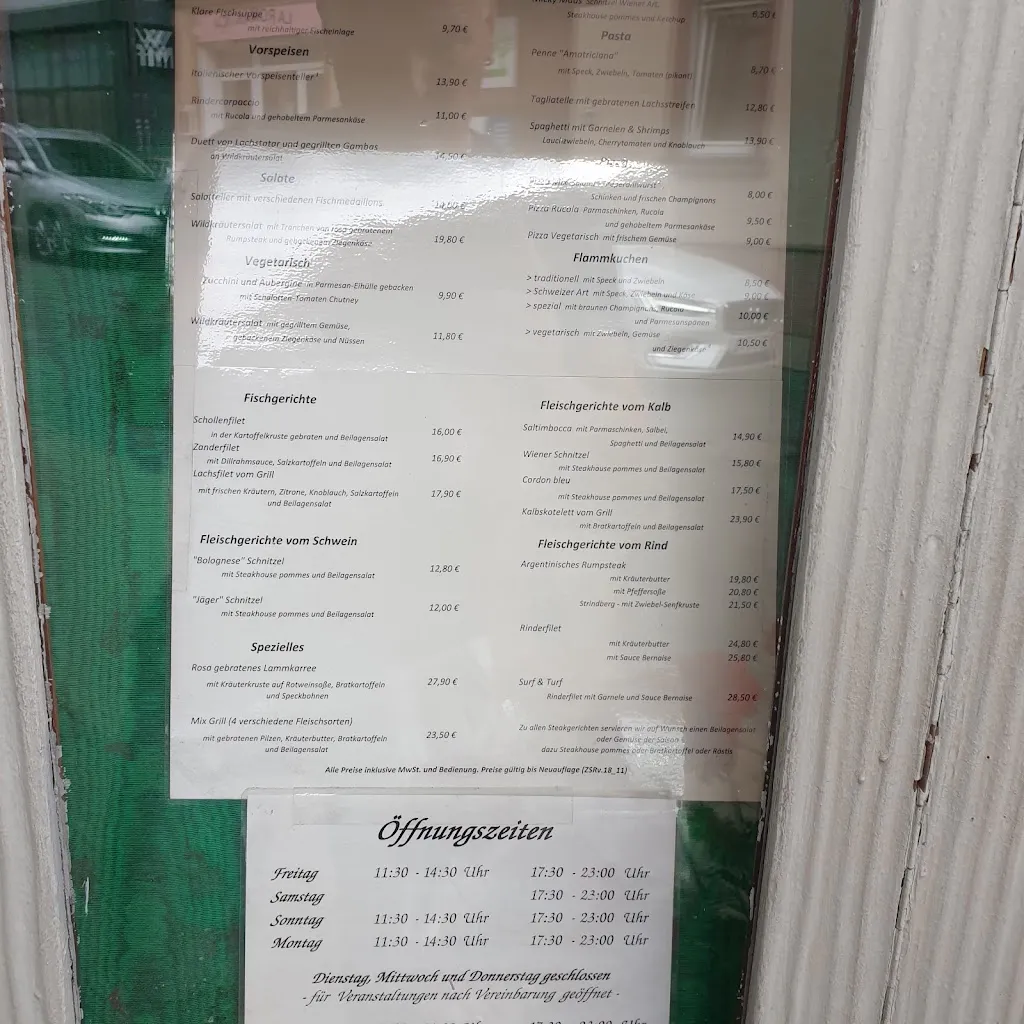 Klare Fischsuppe
mit reichhaltiger Fischeinlage 9,70 €
Vorspeisen
Italienischer Vorspeisenteller
13,90 €
Rindercarpaccio
mit Rucola und gehobeltem Parmesankäse 11,00 €
Duett von Lachstatar und gegrillten Gambas
an Wildkräutersalat 14,50 €
Salate
Salatteller mit verschiedenen Fischmedaillons
Wildkräutersalat mit Tranchen von rosa gebratenem
Rumpsteak und gebackenem Ziegenkäse 19,80 €
Vegetarisch
Zucchini und Aubergine in Parmesan-Eihülle gebacken
mit Schalotten-Tomaten Chutney 9,90 €
Wildkräutersalat mit gegrilltem Gemüse,
gebackenem Ziegenkäse und Nüssen 11,80 €
Schnitzel Wiener Art,
Steakhouse pommes und Ketchup 6,50 €
Pasta
Penne "Amatriciana"
mit Speck, Zwiebeln, Tomaten (pikant) 8,70 €
Tagliatelle mit gebratenen Lachsstreifen 12,80 €
Spaghetti mit Garnelen & Shrimps
Lauchzwiebeln, Cherrytomaten und Knoblauch 13,90 €
Schinken und frischen Champignons 8,00 €
Pizza Rucola Parmaschinken, Rucola
und gehobeltem Parmesankäse 9,50 €
Pizza Vegetarisch mit frischem Gemüse 9,00 €
Flammkuchen
> traditionell mit Speck und Zwiebeln 8,50 €
> Schweizer Art mit Speck, Zwiebeln und Käse 9,00 €
> spezial mit braunen Champignons, Rucola
und Parmesanspänen 10,00 €
> vegetarisch mit Zwiebeln, Gemüse
und Ziegenkäse 10,50 €
Fischgerichte
Schollenfilet
in der Kartoffelkruste gebraten und Beilagensalat 16,00 €
Zanderfilet
mit Dillrahmsauce, Salzkartoffeln und Beilagensalat 16,90 €
Lachsfilet vom Grill
mit frischen Kräutern, Zitrone, Knoblauch, Salzkartoffeln 17,90 €
und Beilagensalat
Fleischgerichte vom Schwein
"Bolognese" Schnitzel
mit Steakhouse pommes und Beilagensalat 12,80 €
"Jäger" Schnitzel
mit Steakhouse pommes und Beilagensalat 12,00 €
Spezielles
Rosa gebratenes Lammkarree
mit Kräuterkruste auf Rotweinsoße, Bratkartoffeln 27,90 €
und Speckbohnen
Mix Grill (4 verschiedene Fleischsorten)
mit gebratenen Pilzen, Kräuterbutter, Bratkartoffeln 23,50 €
und Beilagensalat
Fleischgerichte vom Kalb
Saltimbocca mit Parmaschinken, Salbei,
Spaghetti und Beilagensalat 14,90 €
Wiener Schnitzel
mit Steakhouse pommes und Beilagensalat 15,80 €
Cordon bleu
mit Steakhouse pommes und Beilagensalat 17,50 €
Kalbskotelett vom Grill
mit Bratkartoffeln und Beilagensalat 23,90 €
Fleischgerichte vom Rind
Argentinisches Rumpsteak
mit Kräuterbutter 19,80 €
mit Pfeffersoße 20,80 €
Strindberg - mit Zwiebel-Senfkruste 21,50 €
Rinderfilet
mit Kräuterbutter 24,80 €
mit Sauce Bernaise 25,80 €
Surf & Turf
Rinderfilet mit Garnele und Sauce Bernaise 28,50 €
Zu allen Steakgerichten servieren wir auf Wunsch einen Beilagensalat
oder Gemüse der Saison &
dazu Steakhouse pommes oder Bratkartoffel oder Röstis
Alle Preise inklusive MwSt. und Bedienung. Preise gültig bis Neuauflage (ZSRv.18_11)
Öffnungszeiten
Freitag 11:30 - 14:30 Uhr 17:30 - 23:00 Uhr
Samstag 17:30 - 23:00 Uhr
Sonntag 11:30 - 14:30 Uhr 17:30 - 23:00 Uhr
Montag 11:30 - 14:30 Uhr 17:30 - 23:00 Uhr
Dienstag, Mittwoch und Donnerstag geschlossen
- für Veranstaltungen nach Vereinbarung geöffnet -